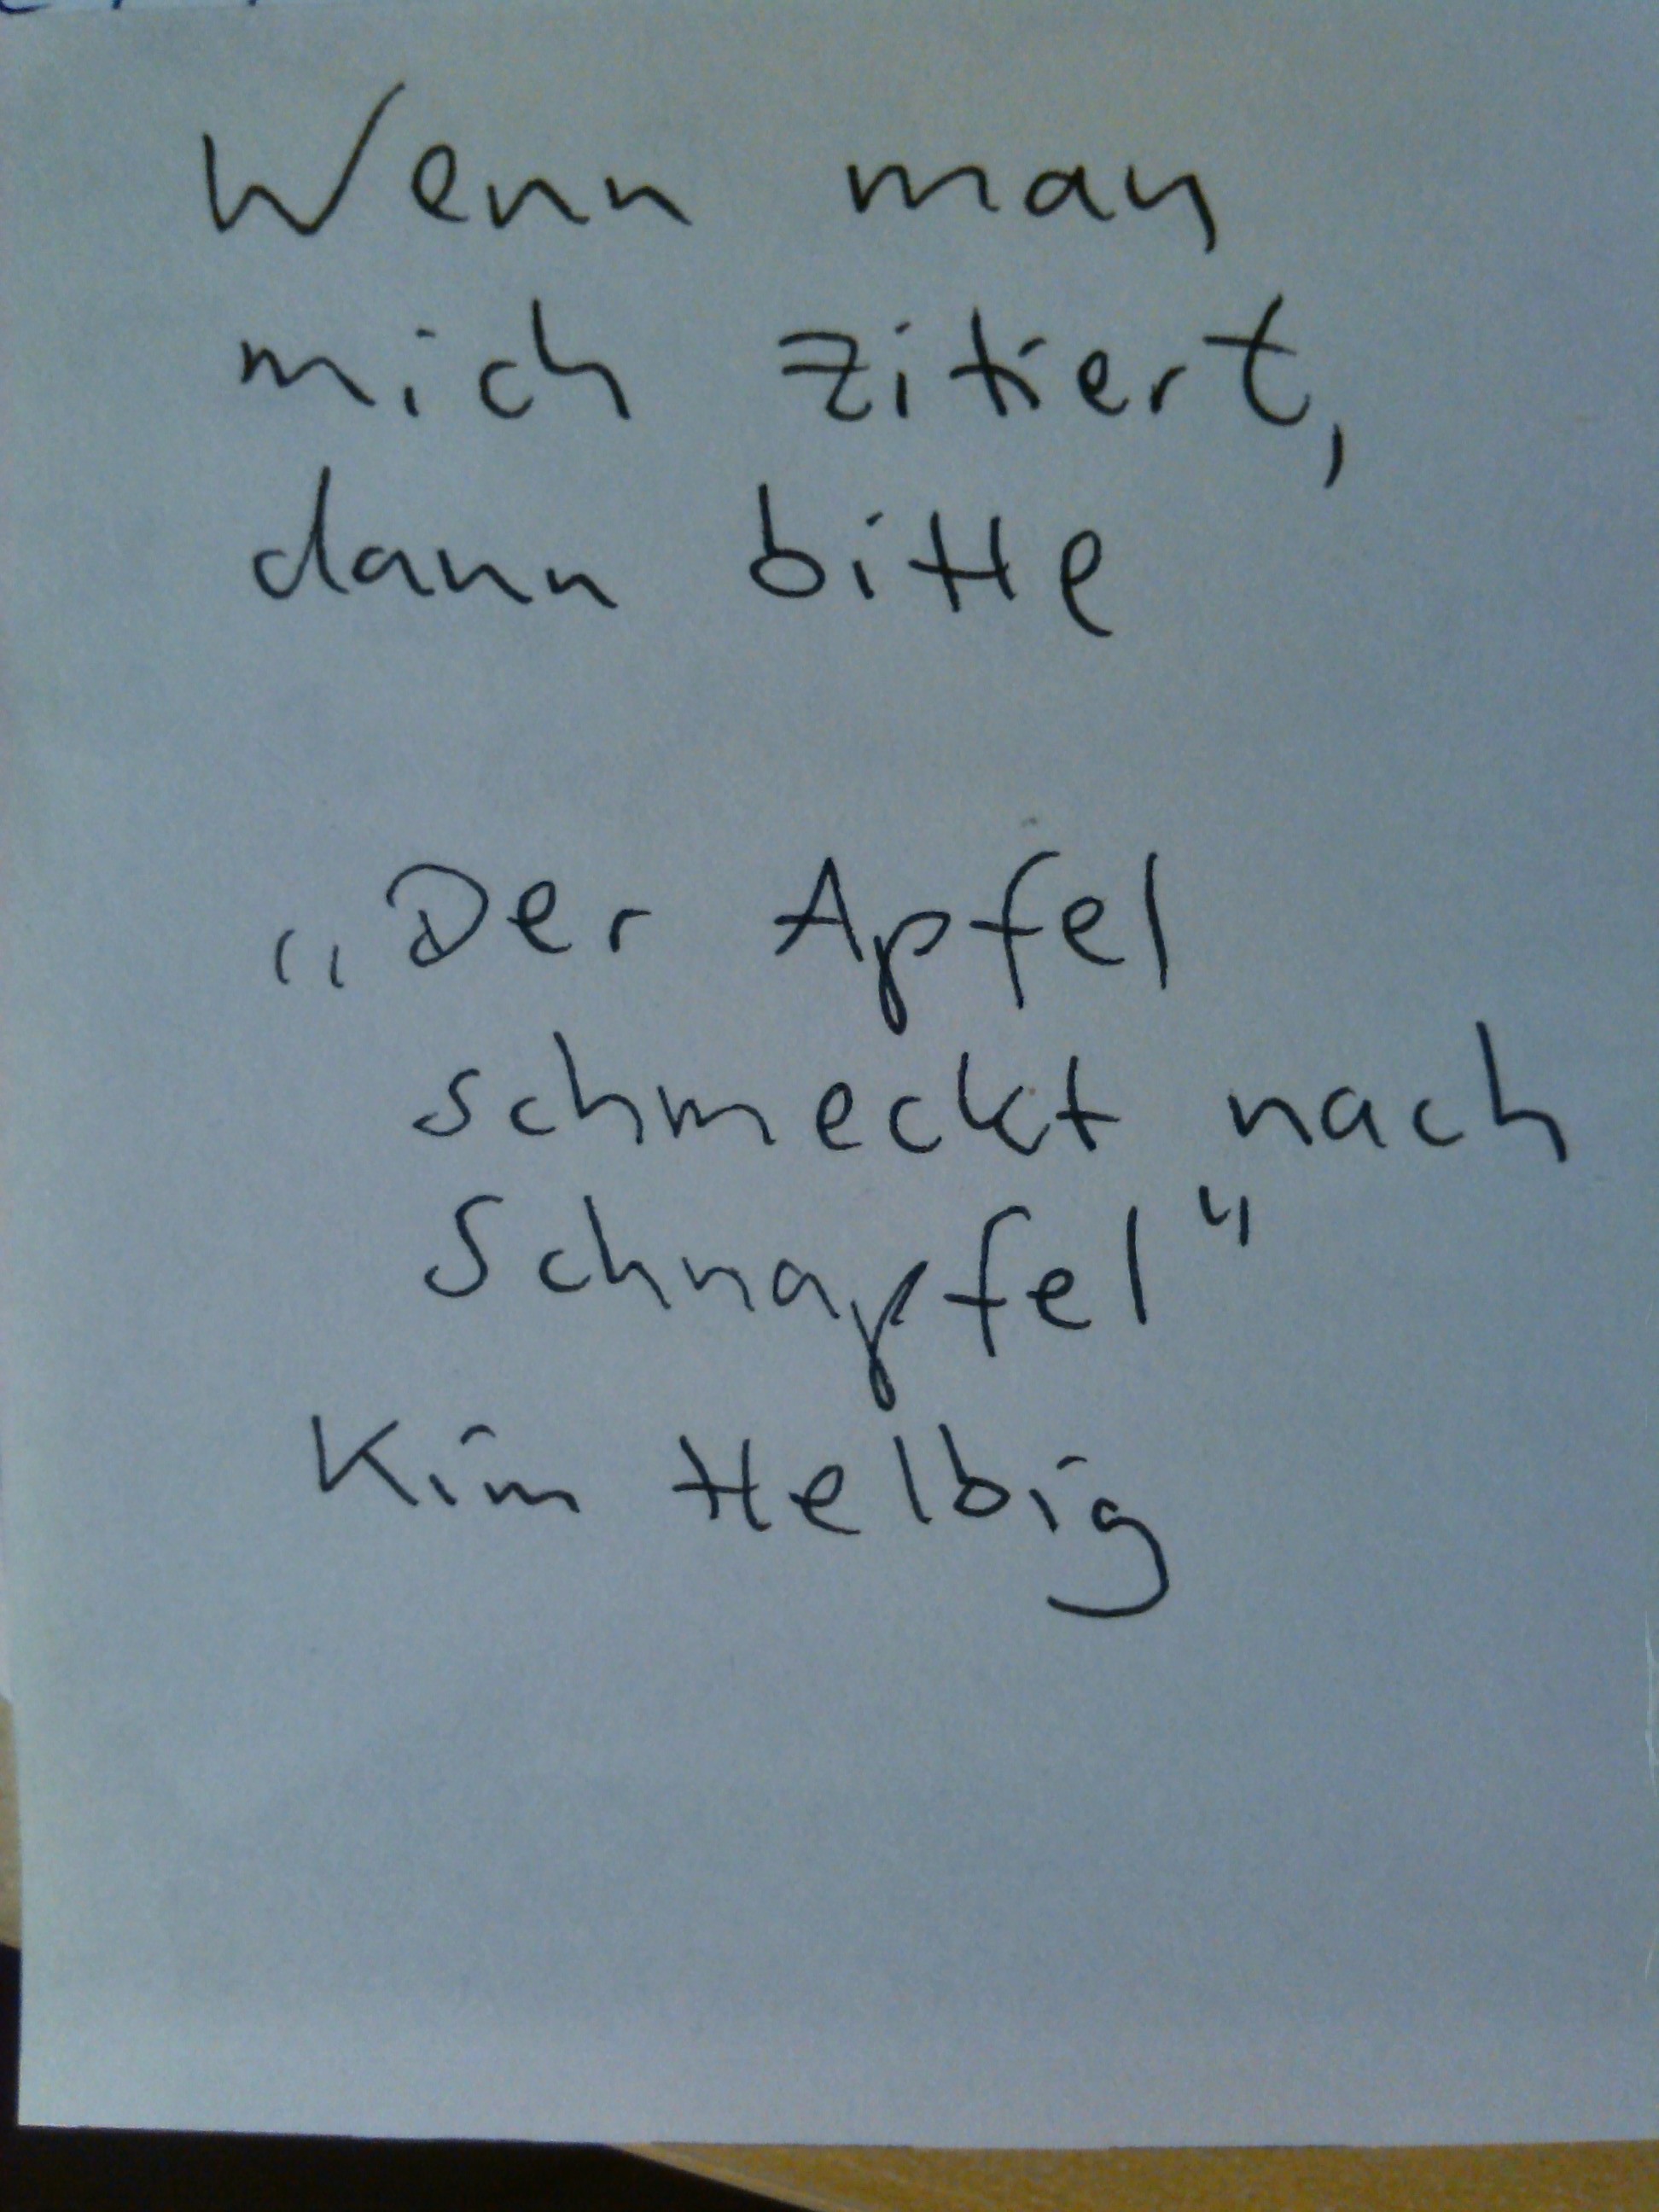 Wenn man
mich zitiert,
dann bitte
„Der Apfel
schmeckt nach
Schnapfel“
Kim Helbig